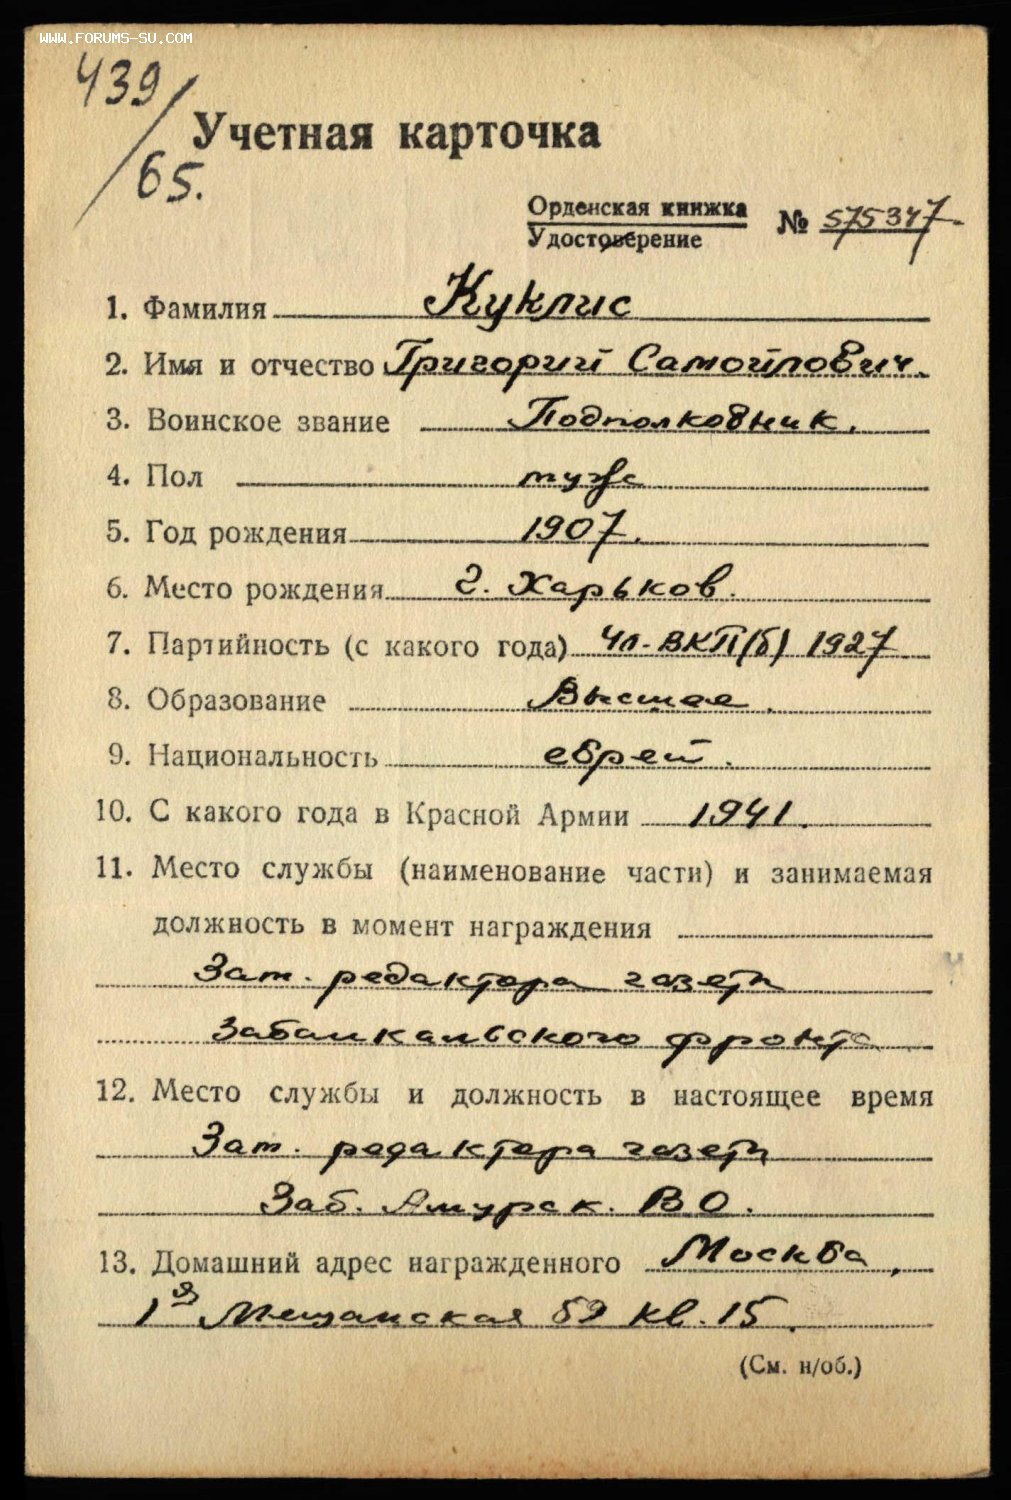 WWW.FORUMS-SU.COM
439/65.
Учетная карточка
Орденская книжка
Удостоверение
№ 575347
1. Фамилия Куклис
2. Имя и отчество Григорий Самойлович.
3. Воинское звание Подполковник.
4. Пол муж
5. Год рождения 1907.
6. Место рождения г. Харьков.
7. Партийность (с какого года) Чл. ВКП(б) 1927
8. Образование Высшее.
9. Национальность еврей.
10. С какого года в Красной Армии 1941.
11. Место службы (наименование части) и занимаемая
должность в момент награждения
Зам. редактора газеты
Забайкальского фронта
12. Место службы и должность в настоящее время
Зам. редактора газеты
Заб. Амурск. ВО.
13. Домашний адрес награжденного Москва,
1я Мещанская 69 кв. 15.
(См. н/об.)